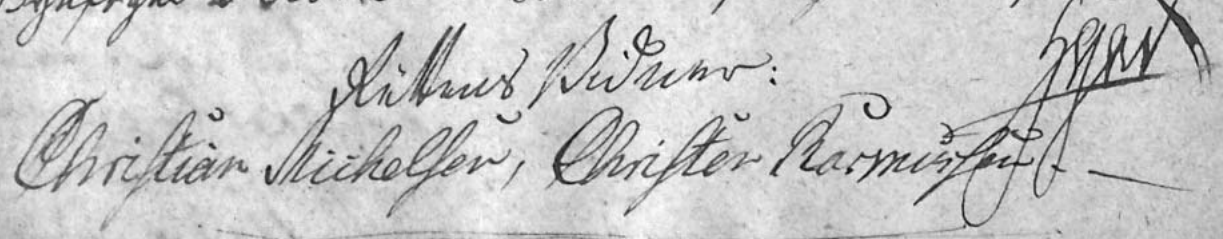 Rettens Vidner:
Christian Michelsen, Christen Rasmussen